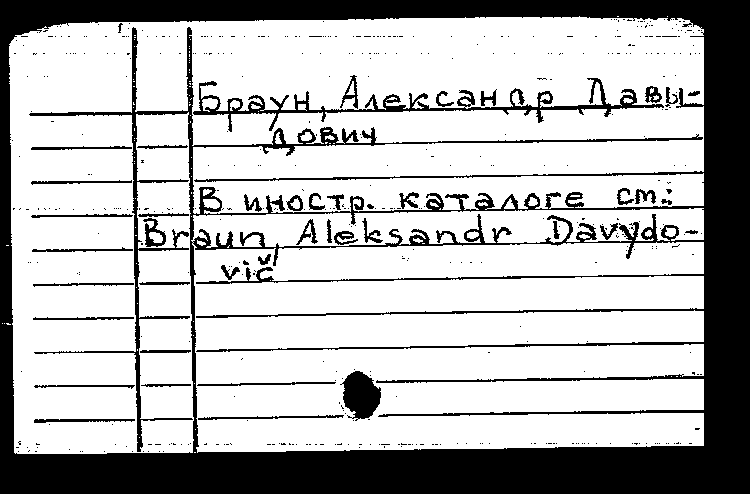 Браун, Александр Давы-
дович
В иностр. каталоге см.:
Braun, Aleksandr Davydo-
vič